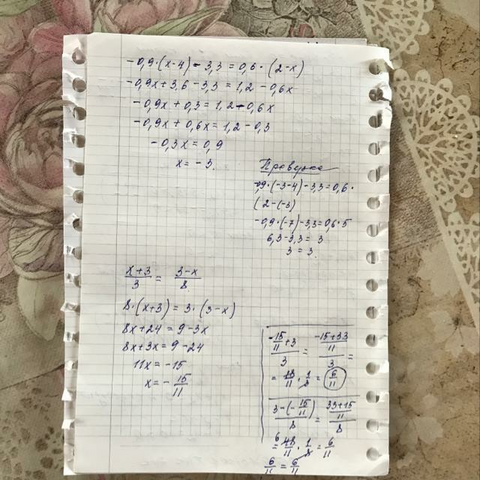 -0,9·(x-4)-3,3=0,6·(2-x)
-0,9x+3,6-3,3=1,2-0,6x
-0,9x+0,3=1,2-0,6x
-0,9x+0,6x=1,2-0,3
-0,3x=0,9
x=-3.
Проверка
-0,9·(-3-4)-3,3=0,6·
(2-(-3)
-0,9·(-7)-3,3=0,6·5
6,3-3,3=3
3=3
(x+3)/3 = (3-x)/8
8·(x+3)=3·(3-x)
8x+24=9-3x
8x+3x=9-24
11x=-15
x=-15/11
(-15/11+3)/3 = ((-15+33)/11)/3 =
= 18/11 · 1/3 = 6/11
(3-(-15/11))/8 = ((33+15)/11)/8
= 48/11 · 1/8 = 6/11
6/11 = 6/11